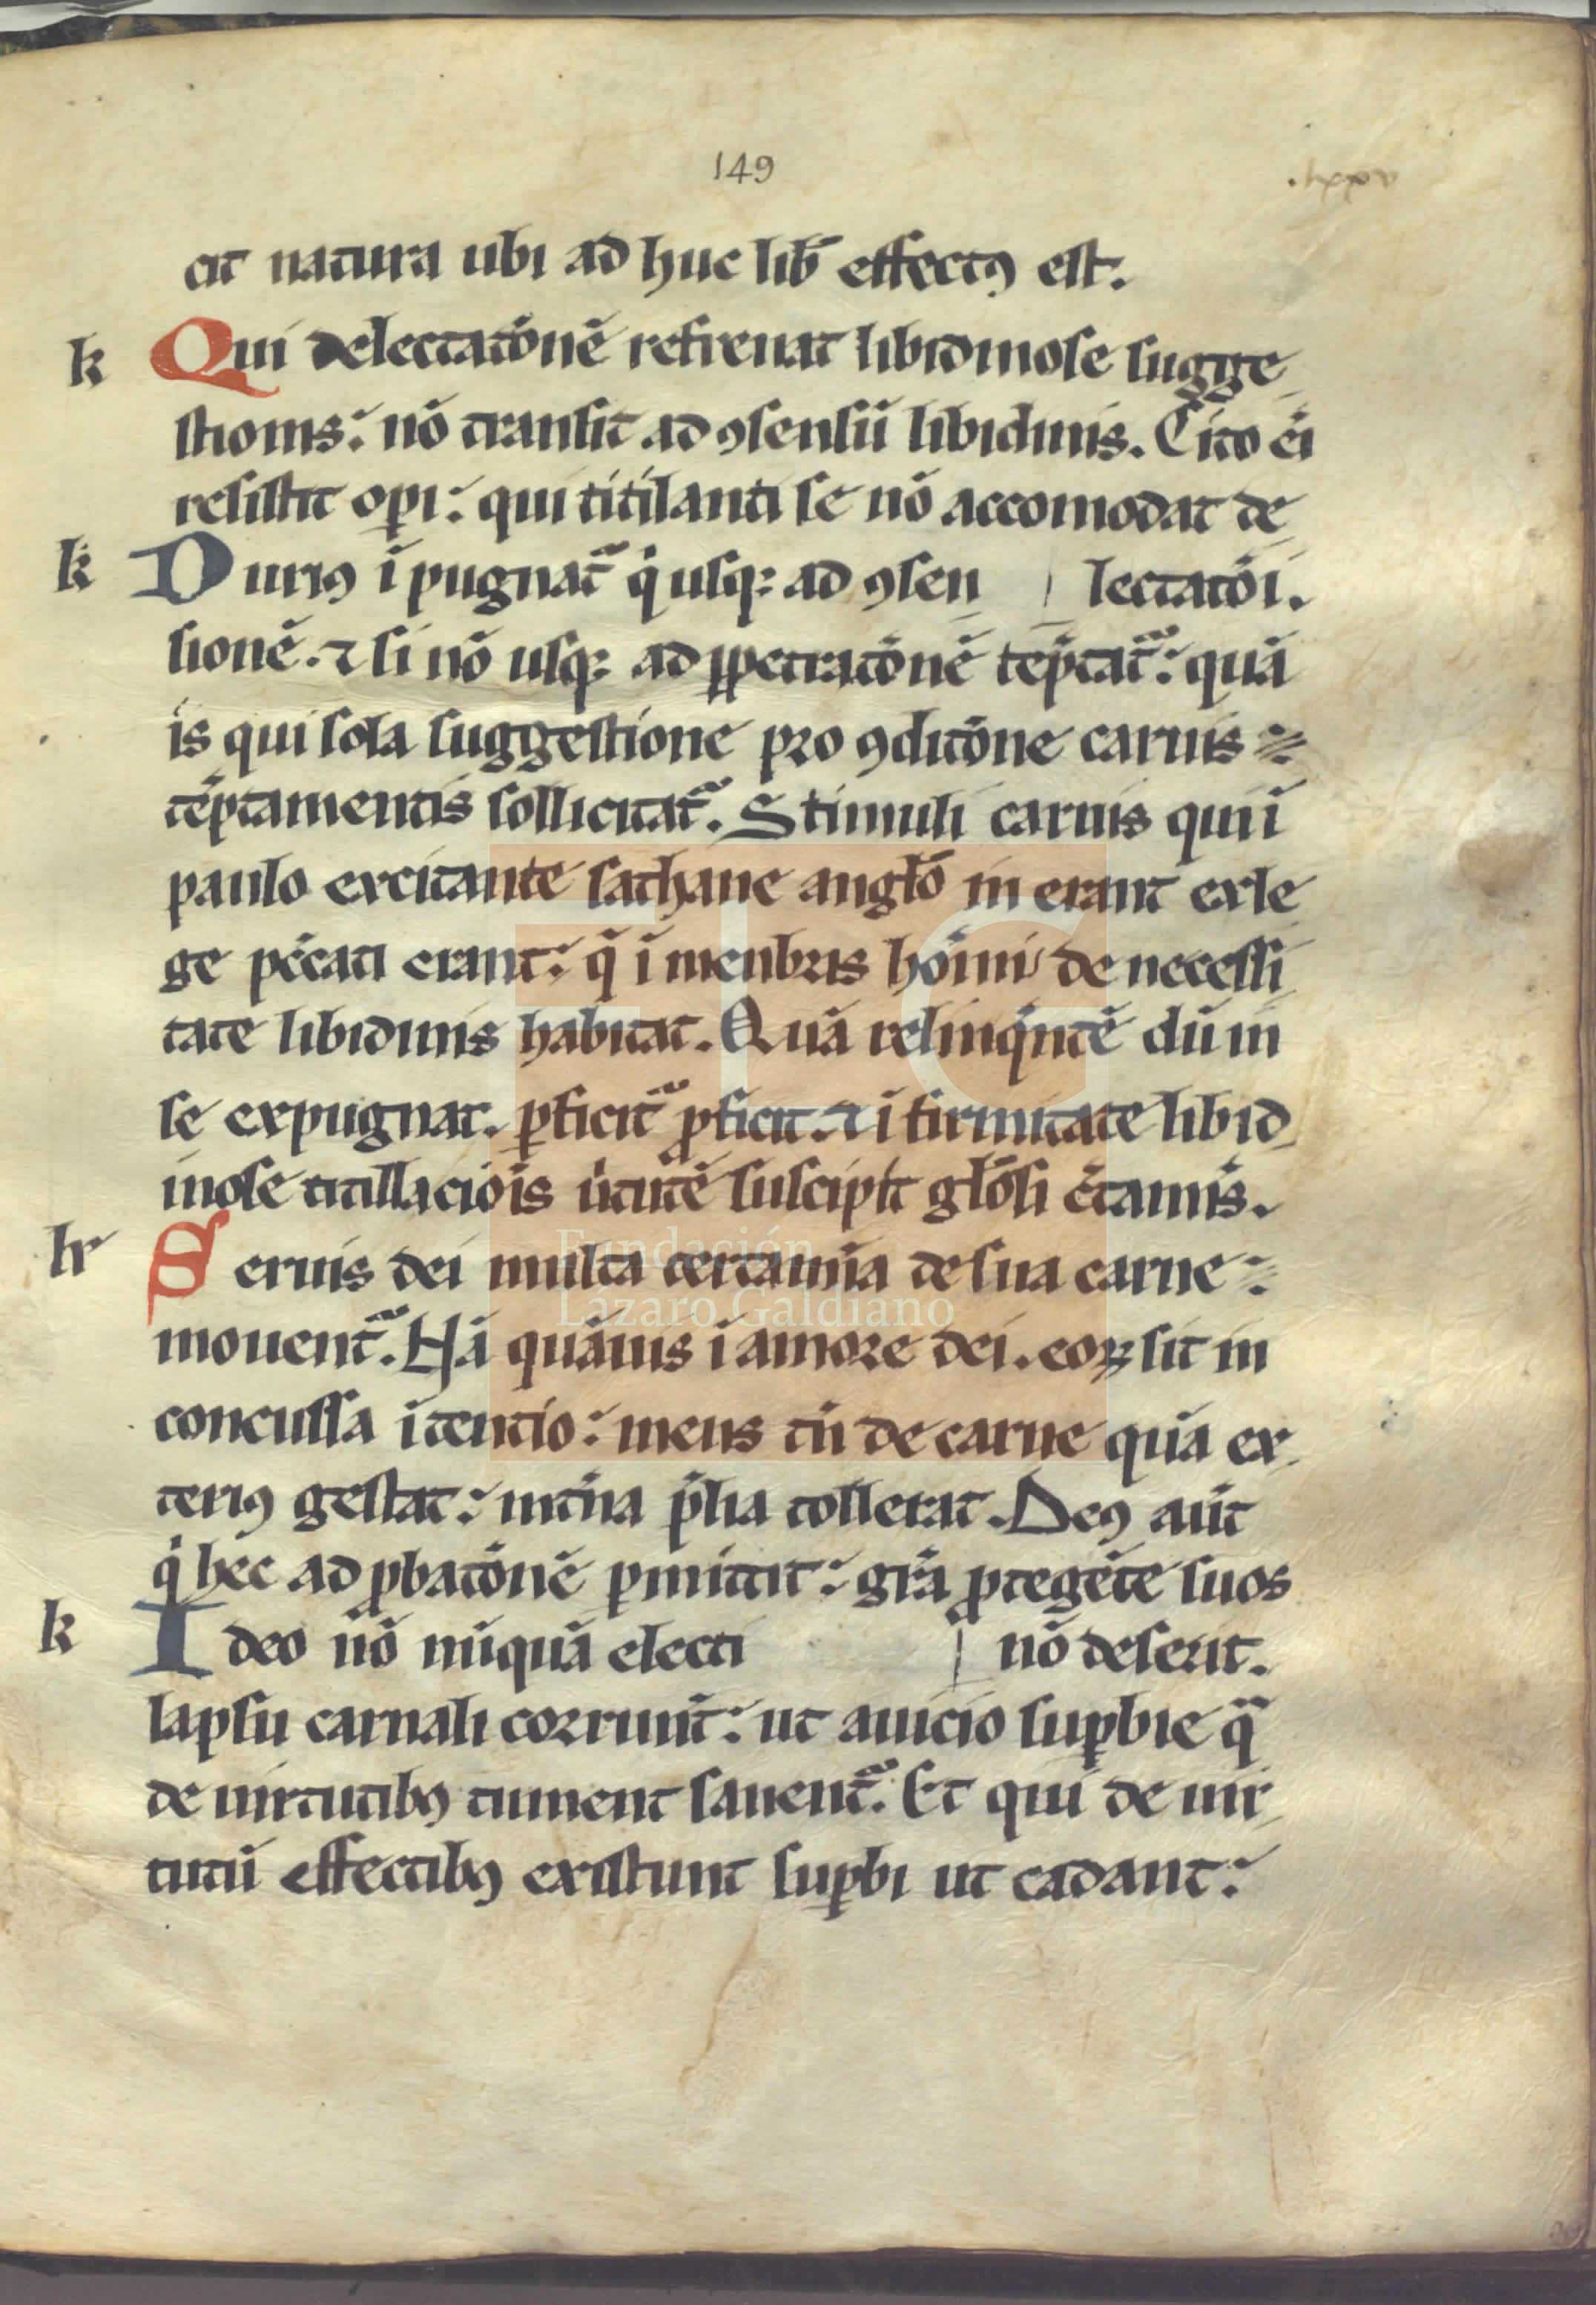 149
.lxxv.
cit natura ubi ad huc lib̄ effectꝰ est.
k Qui delectatōnē refrenat libidinose sugge
stionis: nō transit ad ꝯsensū libidinis. Cito ēi
resistit oꝑi: qui titilanti se nō accomodat de
k Duriꝰ ī pugnat᷑ qͥ usqꝫ ad ꝯsen | lectatōi.
sionē. ⁊ si nō usqꝫ ad ꝑpetratōnē tēptat᷑: quā
is qui sola suggestione pro ꝯditōne carnis
tēptamentis sollicitat᷑. Stimuli carnis qui ī
paulo excitante sathane anglō in erant ex le
ge pc̄cati erant: q̄ ī menbris hōīni de necessi
tate libidinis habitat. Quā relinq̄ntē dū in
se expugnat. ꝑficit᷑ ꝓficit. ⁊ ī firmitate libid
inose titillaciōīs uͥtutē suscipit glōsi c̄taminis.
lr Seruis dei multa certamīa de sua carne:
mouent᷑. Nā quāuis ī amore dei. eoꝝ sit in
concussa ītentio: mens tn̄ de carne quā ex
teriꝰ gestat: int̄na p̄lia tollerat. Deꝰ aūt
qͥ hec ad ꝓbatōnē ꝑmittit: grā ꝓtegēte suos
k Ideo nō nūquā electi | nō deserit.
lapsu carnali corruunt: ut a uicio suꝑbie qͣ
de uirtutibꝰ tument sanent᷑. Et qui de uir
tutū effectibꝰ existunt suꝑbi ut cadant:
Fundación
Lázaro Galdiano